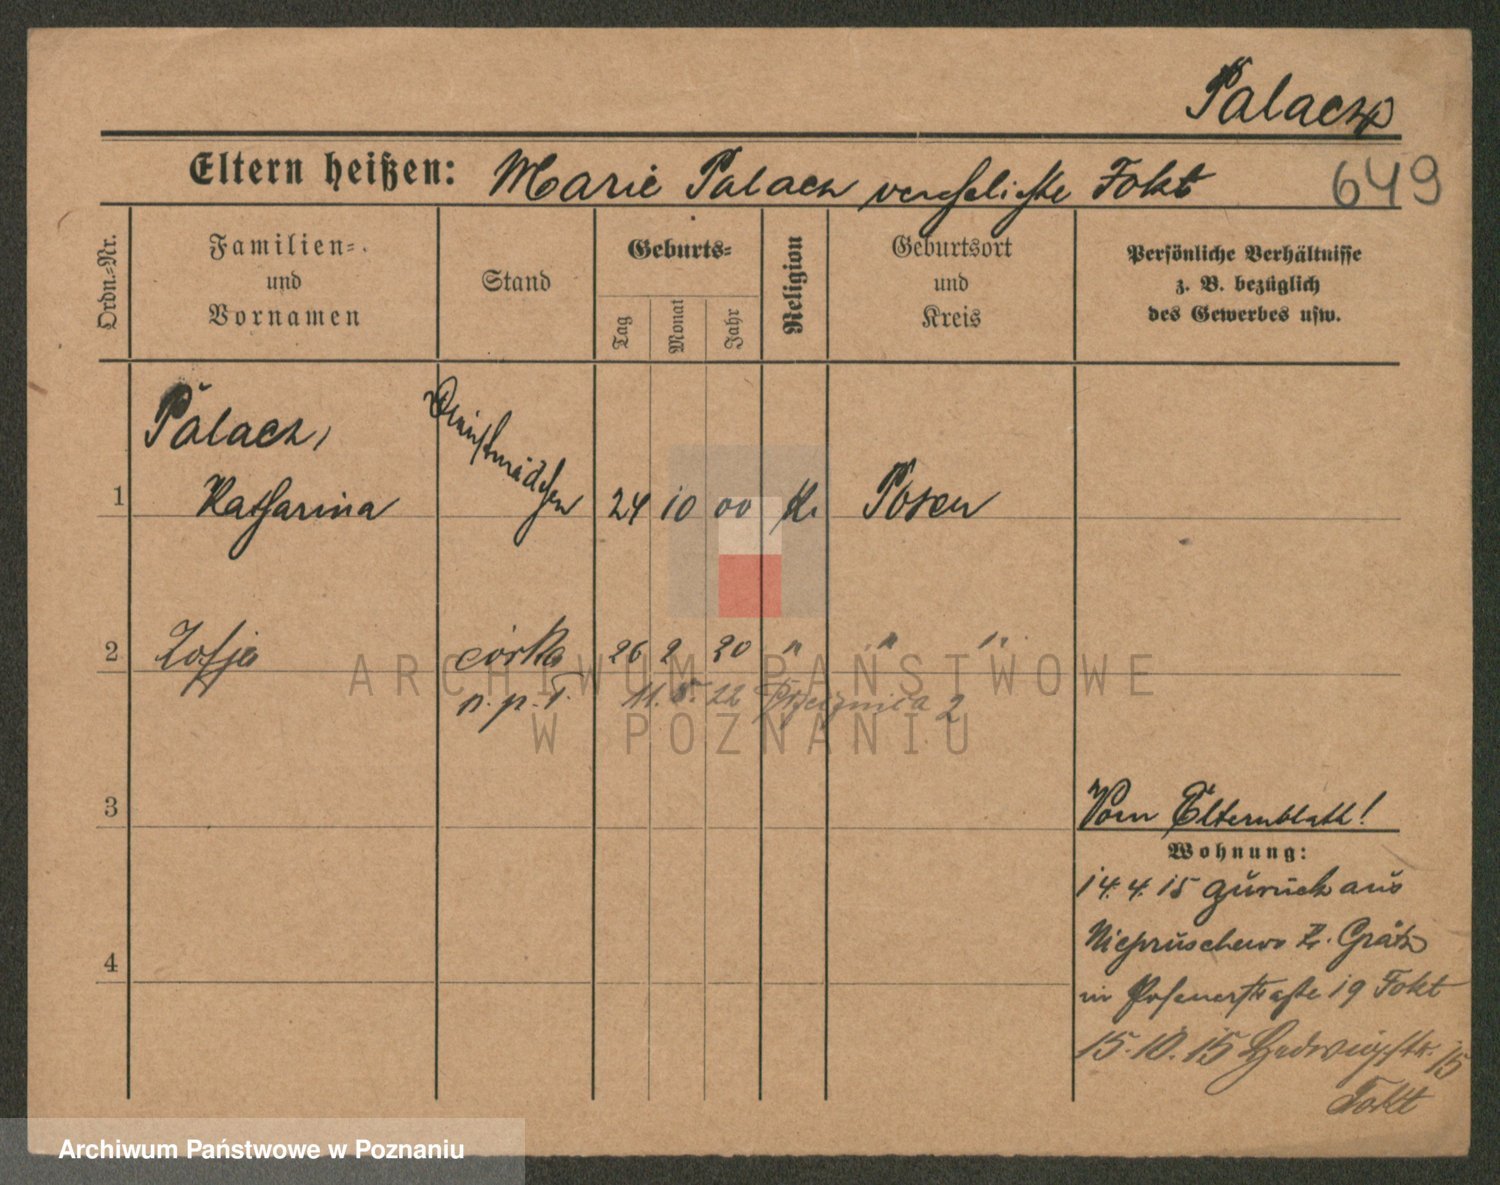 Palacz
Eltern heißen: Marie Palacz verehelichte Fokt
649
Ordn.=Nr.
Familien=
und
Vornamen
Stand
Geburts=
Tag
Monat
Jahr
Religion
Geburtsort
und
Kreis
Persönliche Verhältnisse
z. B. bezüglich
des Gewerbes usw.
1
Palacz,
Katharina
Dienstmädchen
24 10 00 K. Posen
2
Zofja córka 26 2 20 " " "
n. p. T. 11. 5. 22 2
3
4
Vom Elternblatt!
Wohnung:
14. 4. 15 zurück aus
Niepruschewo Kr. Grätz
in Posenerstraße 19 Fokt
15. 10. 15 Hedwigstr. 15
Fokt
ARCHIWUM PAŃSTWOWE
W POZNANIU
Archiwum Państwowe w Poznaniu